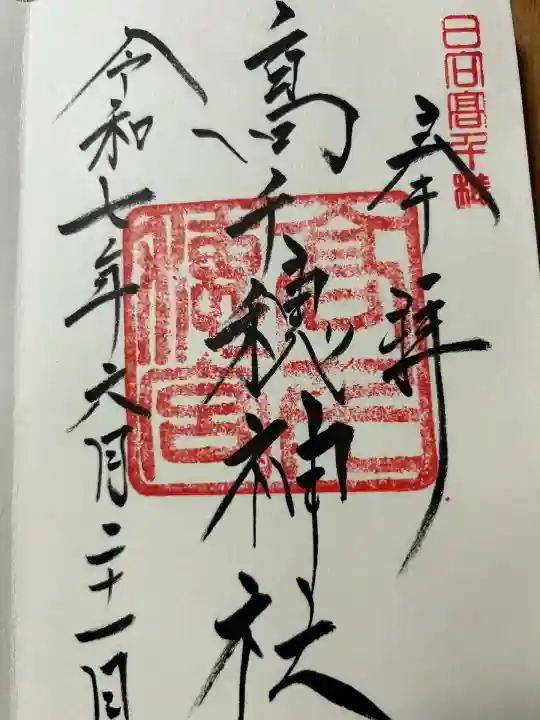 日向髙千穂
奉拝
高千穂神社
令和七年六月二十一日